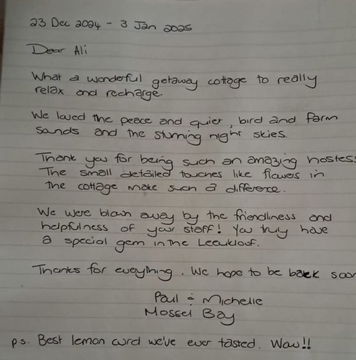 23 Dec 2024 - 3 Jan 2025
Dear Ali
What a wonderful getaway cotage to really
relax and recharge.
We loved the peace and quiet, bird and farm
sands and the stunning night skies.
Thank you for being such an amazing hostess
The small detailed touches like flowers in
the cottage make such a difference.
We were blown away by the friendliness and
helpfulness of your staff! You truly have
a special gem in the Leeukloof.
Thanks for everything. We hope to be back soon
Paul & Michelle
Mossel Bay
p.s. Best lemon curd we've ever tasted. Wow!!